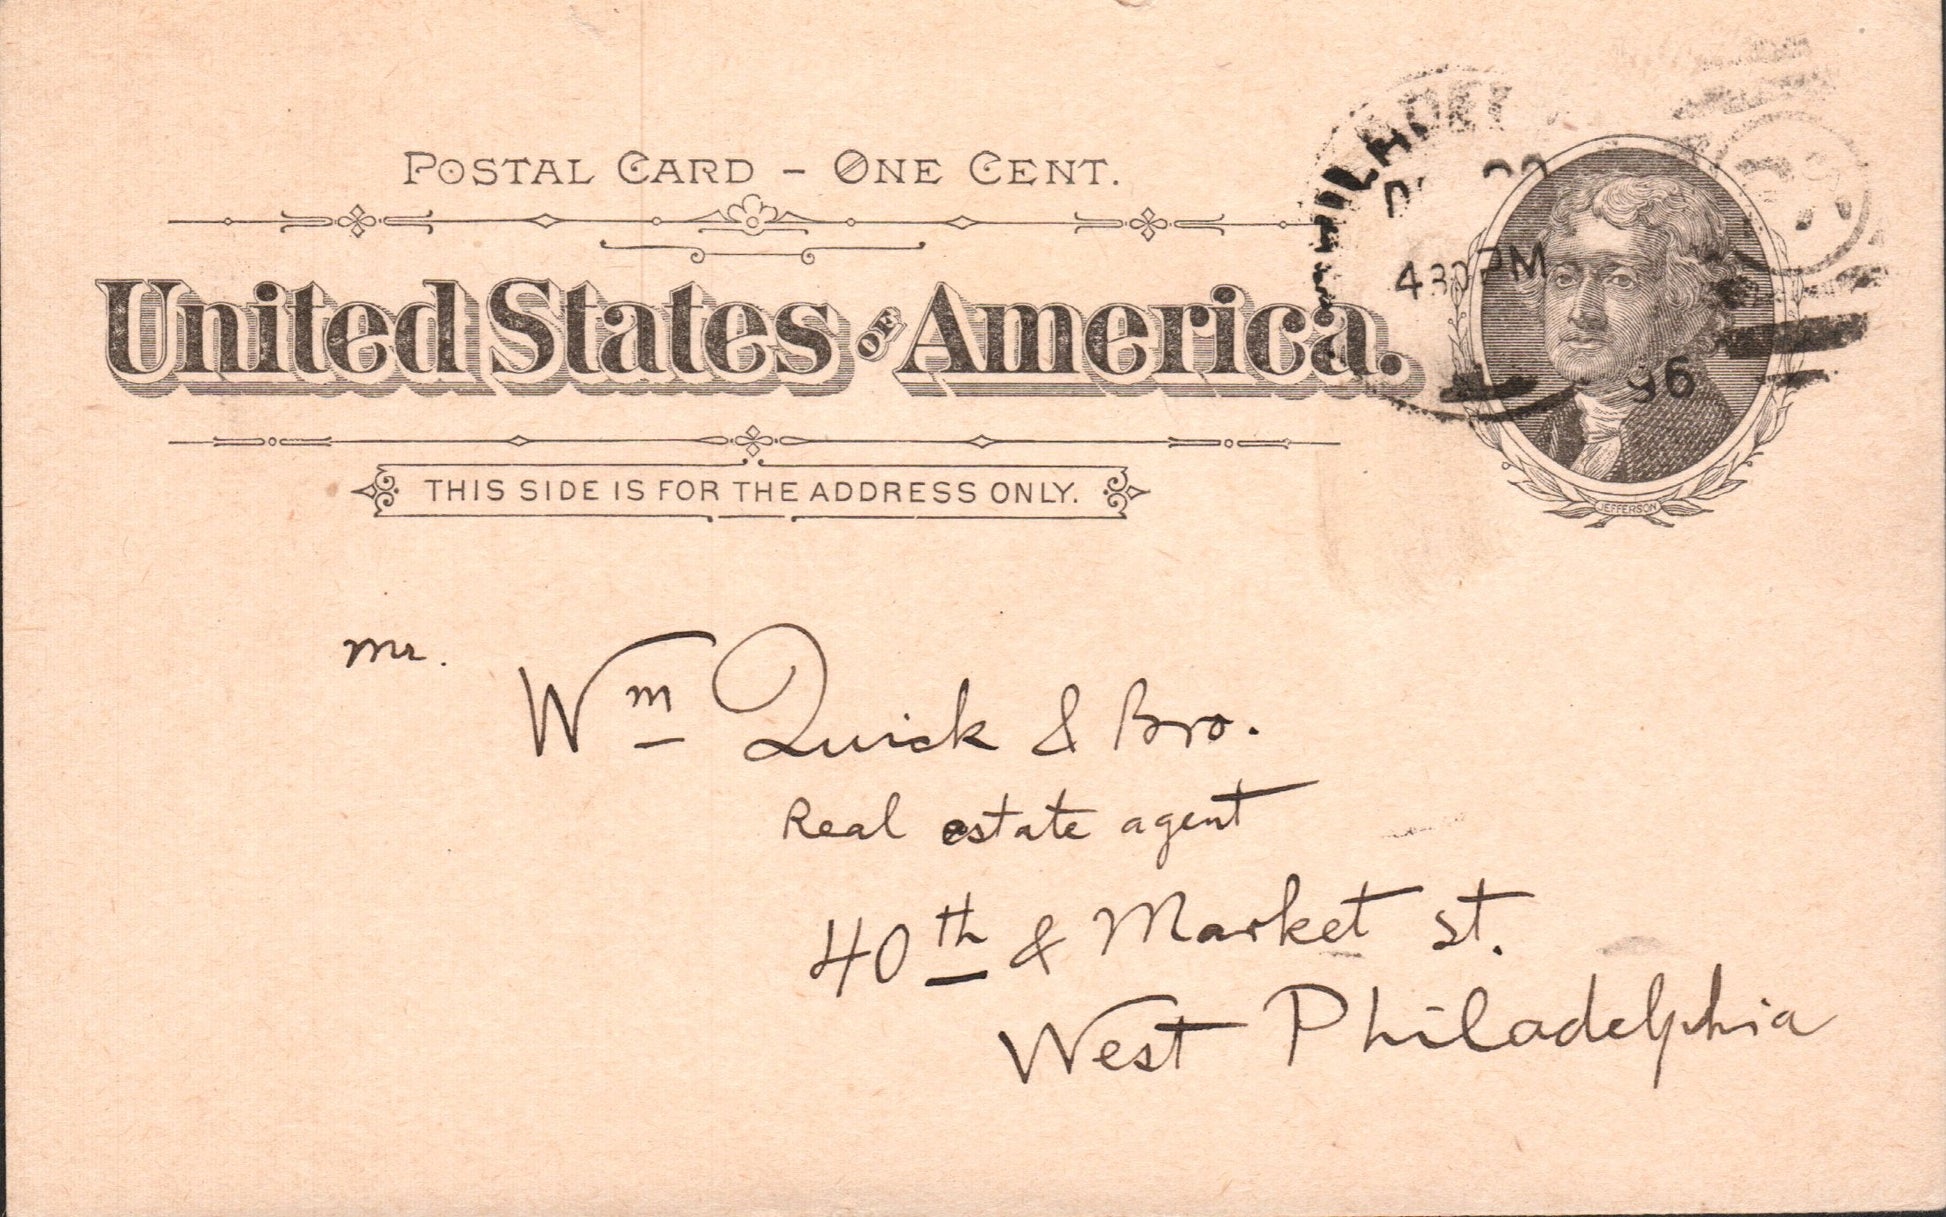 POSTAL CARD – ONE CENT.
United States OF America.
THIS SIDE IS FOR THE ADDRESS ONLY.
PHILADEL
430 PM
96
JEFFERSON
Mr.
Wm Quick & Bro.
Real estate agent
40th & Market st.
West Philadelphia